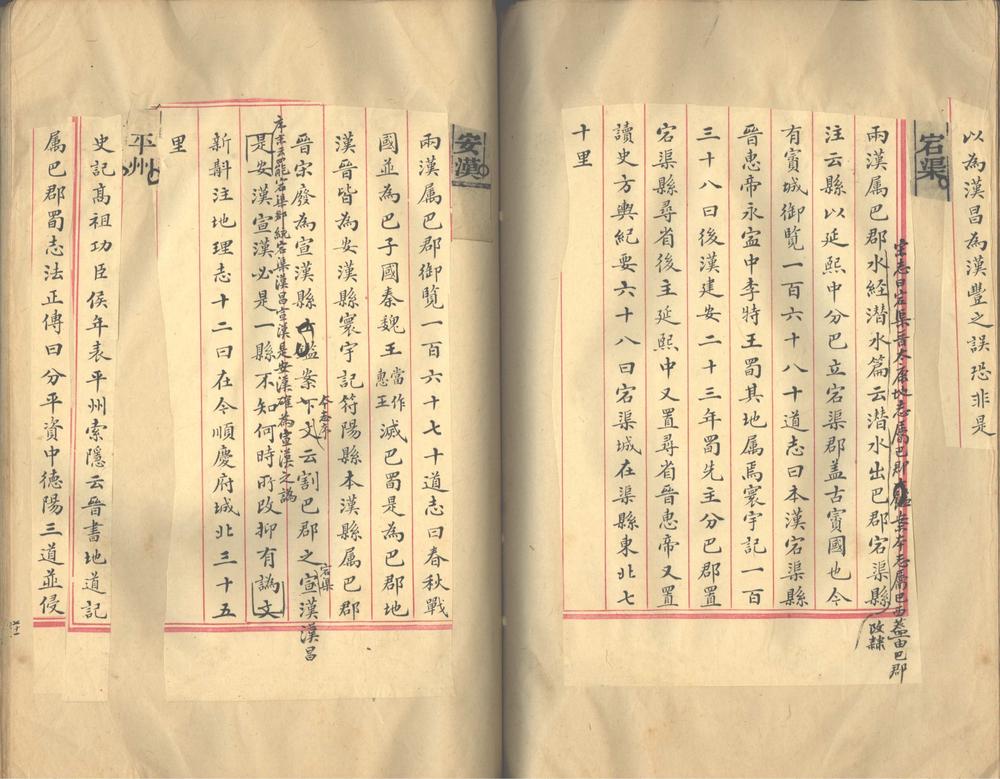 以為漢昌為漢豐之誤恐非是
宕渠
宋志曰宕渠晉太康地志属巴郡 鑑案本志属巴西蓋由巴郡
改隸
兩漢属巴郡水經潜水篇云潜水出巴郡宕渠縣
注云縣以延熙中分巴立宕渠郡盖古賨國也今
有賨城御覧一百六十八十道志曰本漢宕渠縣
晉惠帝永寍中李特王蜀其地属焉寰宇記一百
三十八曰後漢建安二十三年蜀先主分巴郡置
宕渠縣尋省後主延熙中又置尋省晉惠帝又置
讀史方輿紀要六十八曰宕渠城在渠縣東北七
十里
安漢
兩漢属巴郡御覧一百六十七十道志曰春秋戰
國並為巴子國秦魏王當作惠王滅巴蜀是為巴郡地
漢晉皆為安漢縣寰宇記符陽縣本漢縣属巴郡
晉宋廢為宣漢縣 鑑案下文云割巴郡之宣漢漢昌
宕渠
序末云罷宕渠郡統宕渠漢昌宣漢是安漢確為宣漢之譌
是安漢宣漢必是一縣不知何時所改抑有譌文
新斠注地理志十二曰在今順慶府城北三十五
里
平州
史記髙祖功臣侯年表平州索隱云晉書地道記
属巴郡蜀志法正傳曰分平資中德陽三道並侵